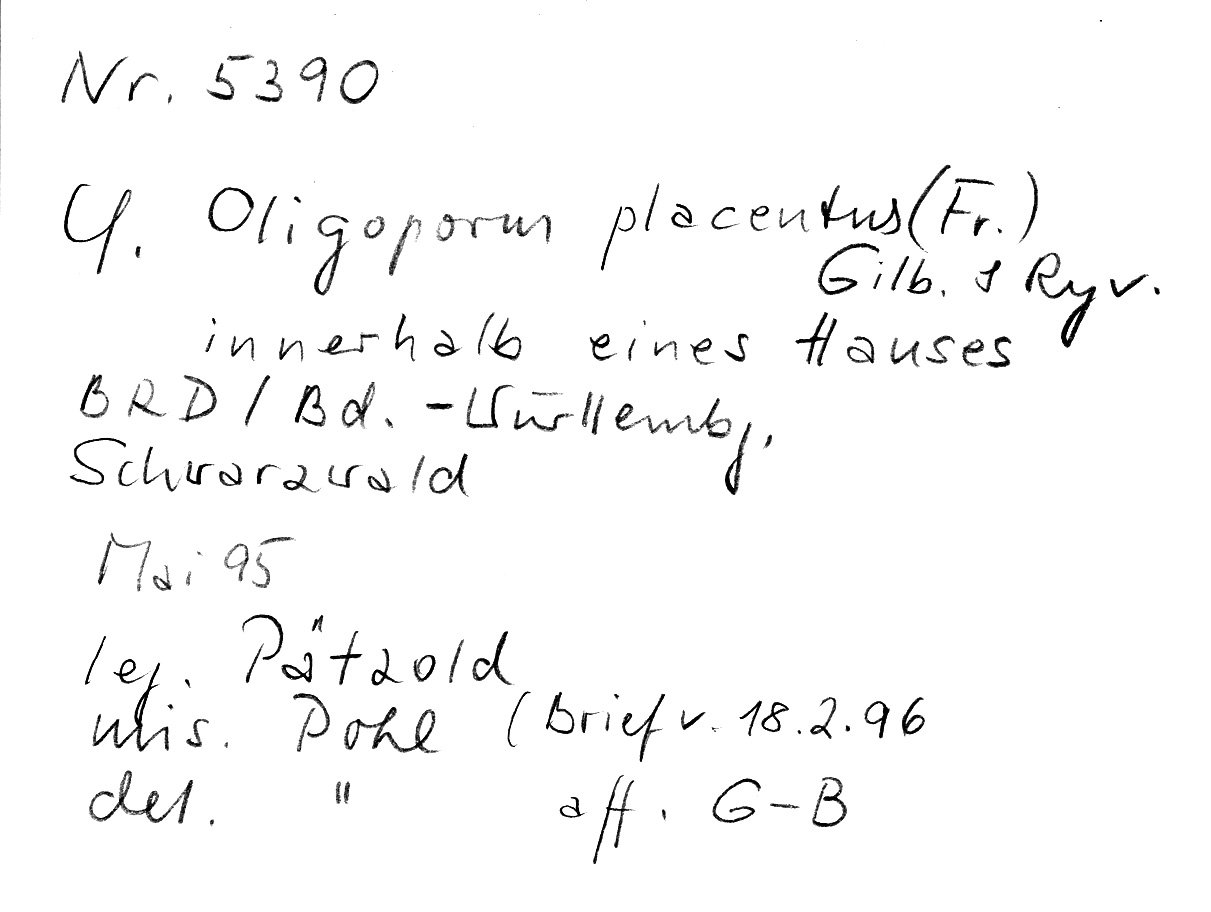 Nr. 5390
cf. Oligoporus placentus (Fr.)
Gilb. & Ryv.
innerhalb eines Hauses
BRD / Bd.-Württembg.
Schwarzwald
Mai 95
leg. Pätzold
mis. Pohl (Brief v. 18.2.96
det. " aff. G-B